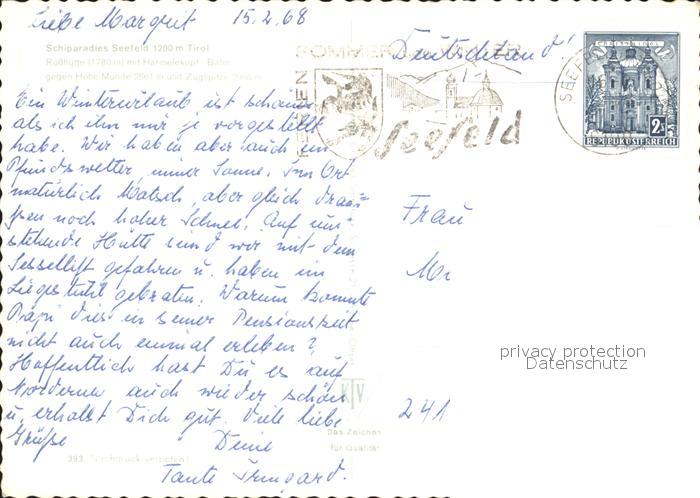 Liebe Margret 15.2.68
Schiparadies Seefeld 1200 m Tirol
Roßhütte (1780 m) mit Harmelekopf-Bahn
gegen Hohe Munde 2661 m und Zugspitze
Ein Winterurlaub ist schöner
als ich ihn mir je vorgestellt
habe. Wir haben aber auch ein
Pfundswetter, immer Sonne. Im Ort
natürlich Matsch, aber gleich drau=
ßen noch hoher Schnee. Auf um=
stehende Hütte sind wir mit dem
Sessellift gefahren u. haben im
Liegestuhl gebraten. Warum konnte
Papi dies in seiner Pensionszeit
nicht auch einmal erleben?
Hoffentlich hast Du es auf
Norderney auch wieder schön
u. erholst Dich gut. Viele liebe
Grüße Deine
Tante Irmgard.
393 Nachdruck verboten!
KTV
Das Zeichen
für Qualität
SOMMER
FERIEN
Seefeld
SEEF
2 S
REPUBLIK ÖSTERREICH
Deutschland!
Frau
241
privacy protection
Datenschutz